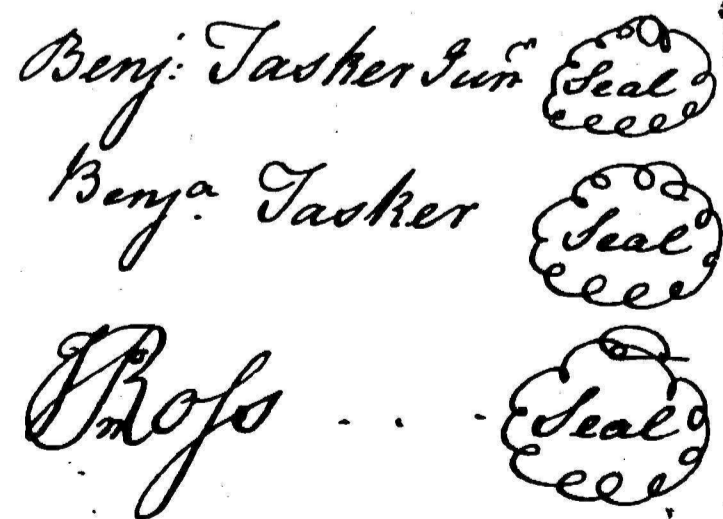 Benj: Tasker Junr Seal
Benja. Tasker Seal
Jno Ross . . . Seal